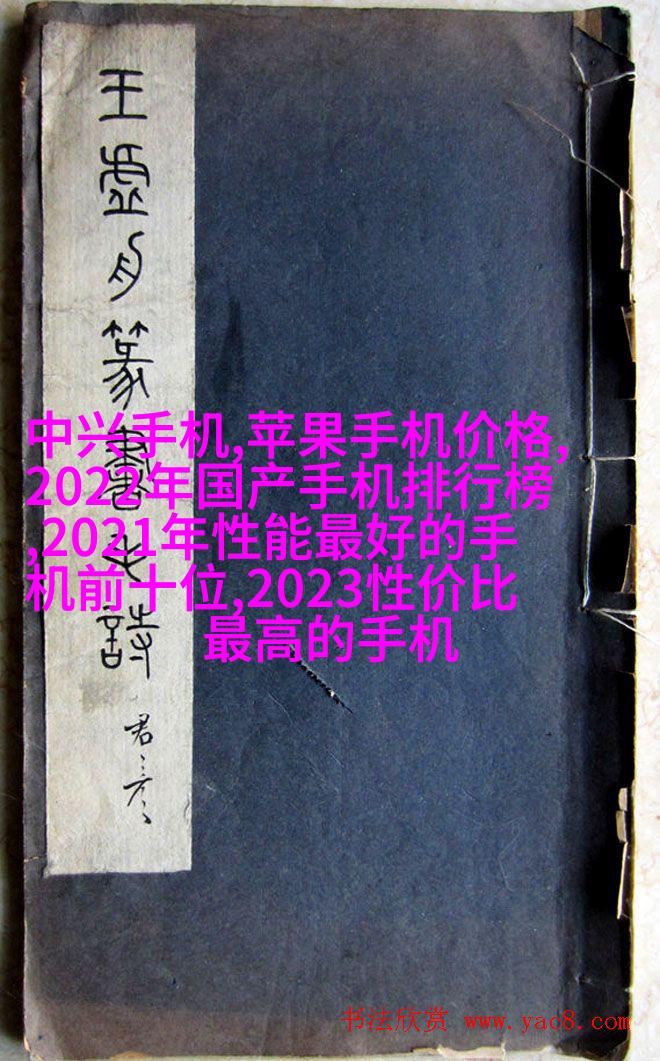 王虛舟篆書詩
君
中兴手机,苹果手机价格,
2022年国产手机排行榜
,2021年性能最好的手
机前十位,2023性价比
最高的手机
书法欣赏 www.yac8.com